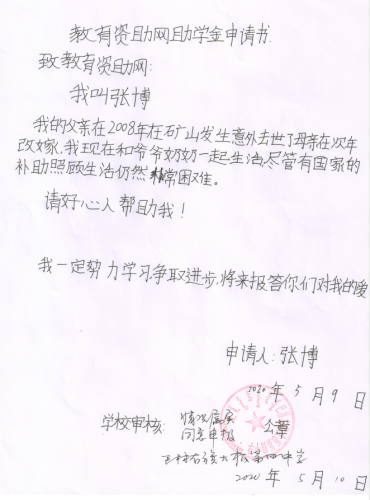 教育资助网助学金申请书
致教育资助网:
我叫张博
我的父亲在2008年在矿山发生意外去世了母亲在次年
改嫁,我现在和爷爷奶奶一起生活,尽管有国家的
补助照顾生活仍然非常困难。
请好心人帮助我!
我一定努力学习,争取进步,将来报答你们对我的爱
申请人:张博
2020年5月9日
学校审核: 情况属实
同意申报 公章
第四中学
2020年5月10日